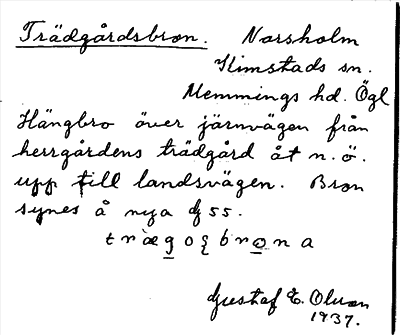 Trädgårdsbron. Norsholm
Kimstads sn.
Memmings hd. Ögl
Hängbro över järnvägen från
herrgårdens trädgård åt n.ö.
upp till landsvägen. Bron
synes å nya gf 55.
Gustaf E. Olsson
1937.